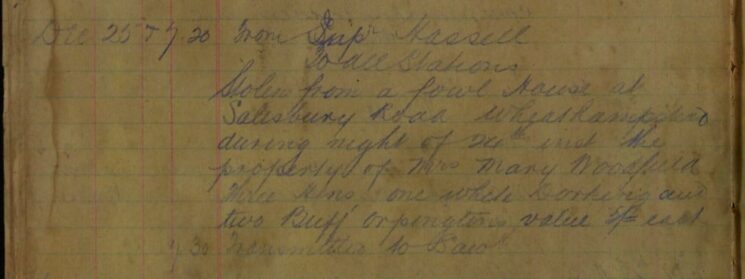 Dec 25th 7.30 From Supr Hassell
To all Stations
Stolen from a fowl House at
Salesbury Road Wheathampstead
during night of 24th inst the
property of Mrs Mary Woodfield
three Hens one white Dorking and
two Buff orpingtons value each
7.30 Transmitted to